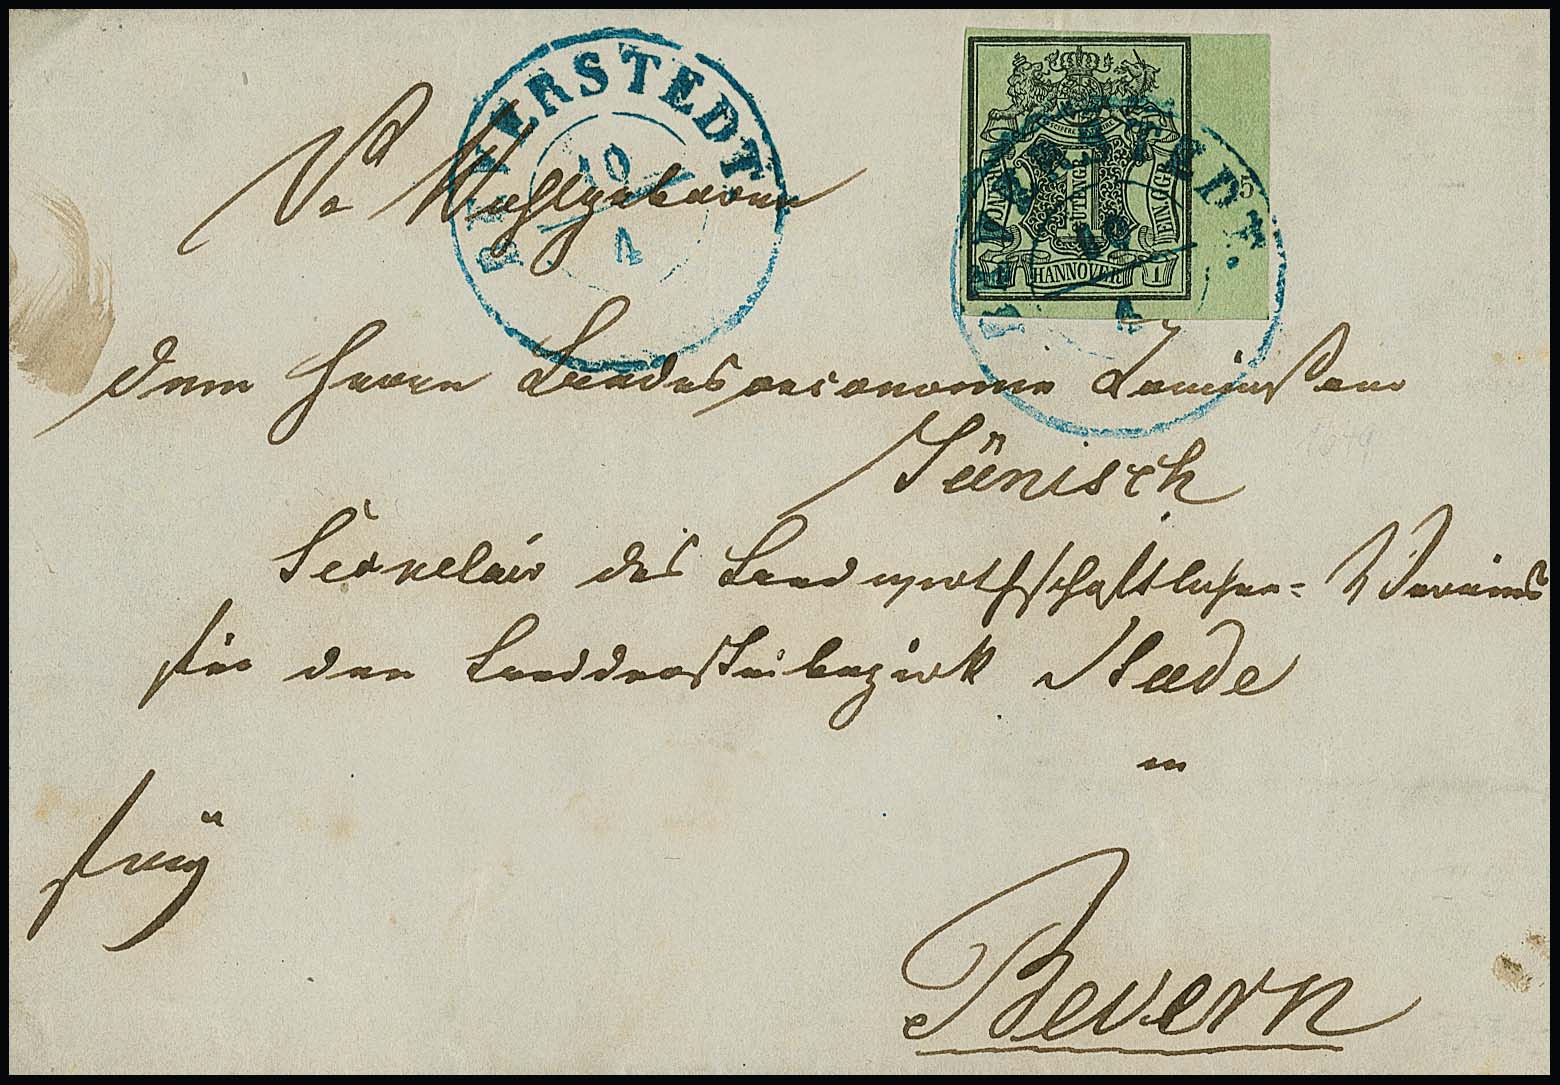 BEVERSTEDT
10
4
EIN GGR
HANNOVER
1
5
BEVERSTEDT.
10
4
Sr Wohlgeboren
dem Herrn Landesoeconomie Commissair
Jänisch
Secretair des Landwirthschaftlichen= Vereins
für den Landdrosteibezirk Stade
in
frey
Bevern